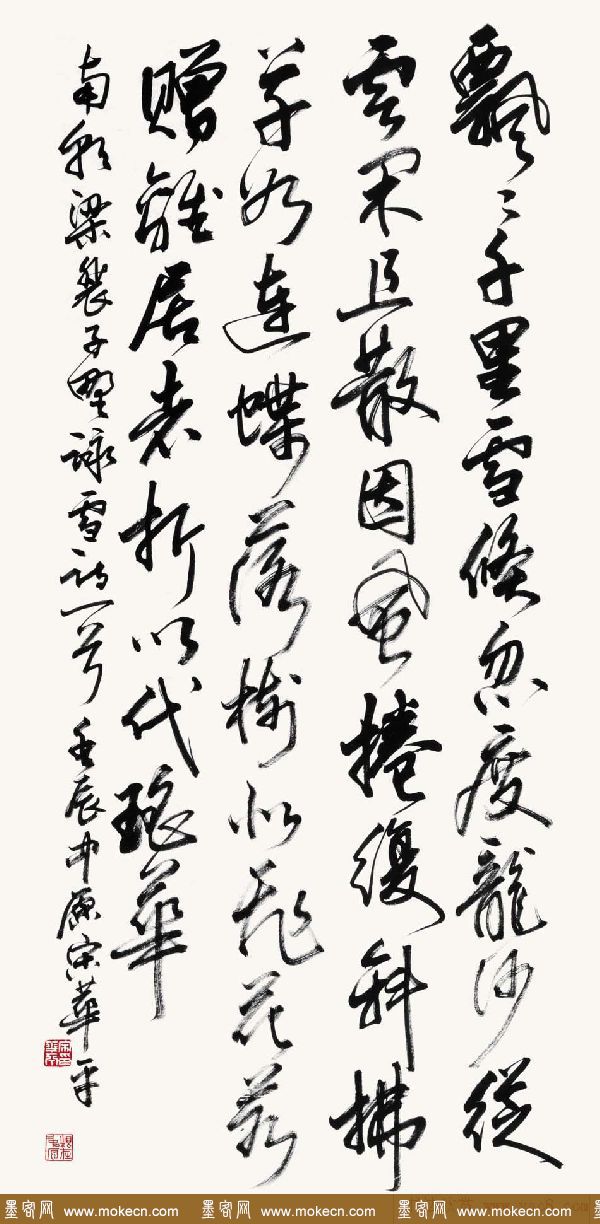 飄〻千里雪倏忽度龍沙從
雲且散因風捲復斜拂
草如連蝶落樹似飛花若
贈離居者折以代瑤華
南朝梁裴子野詠雪詩一首 壬辰中原宋華平
墨客网 www.mokecn.com 墨客网 www.mokecn.com 墨客网 www.mokecn.com